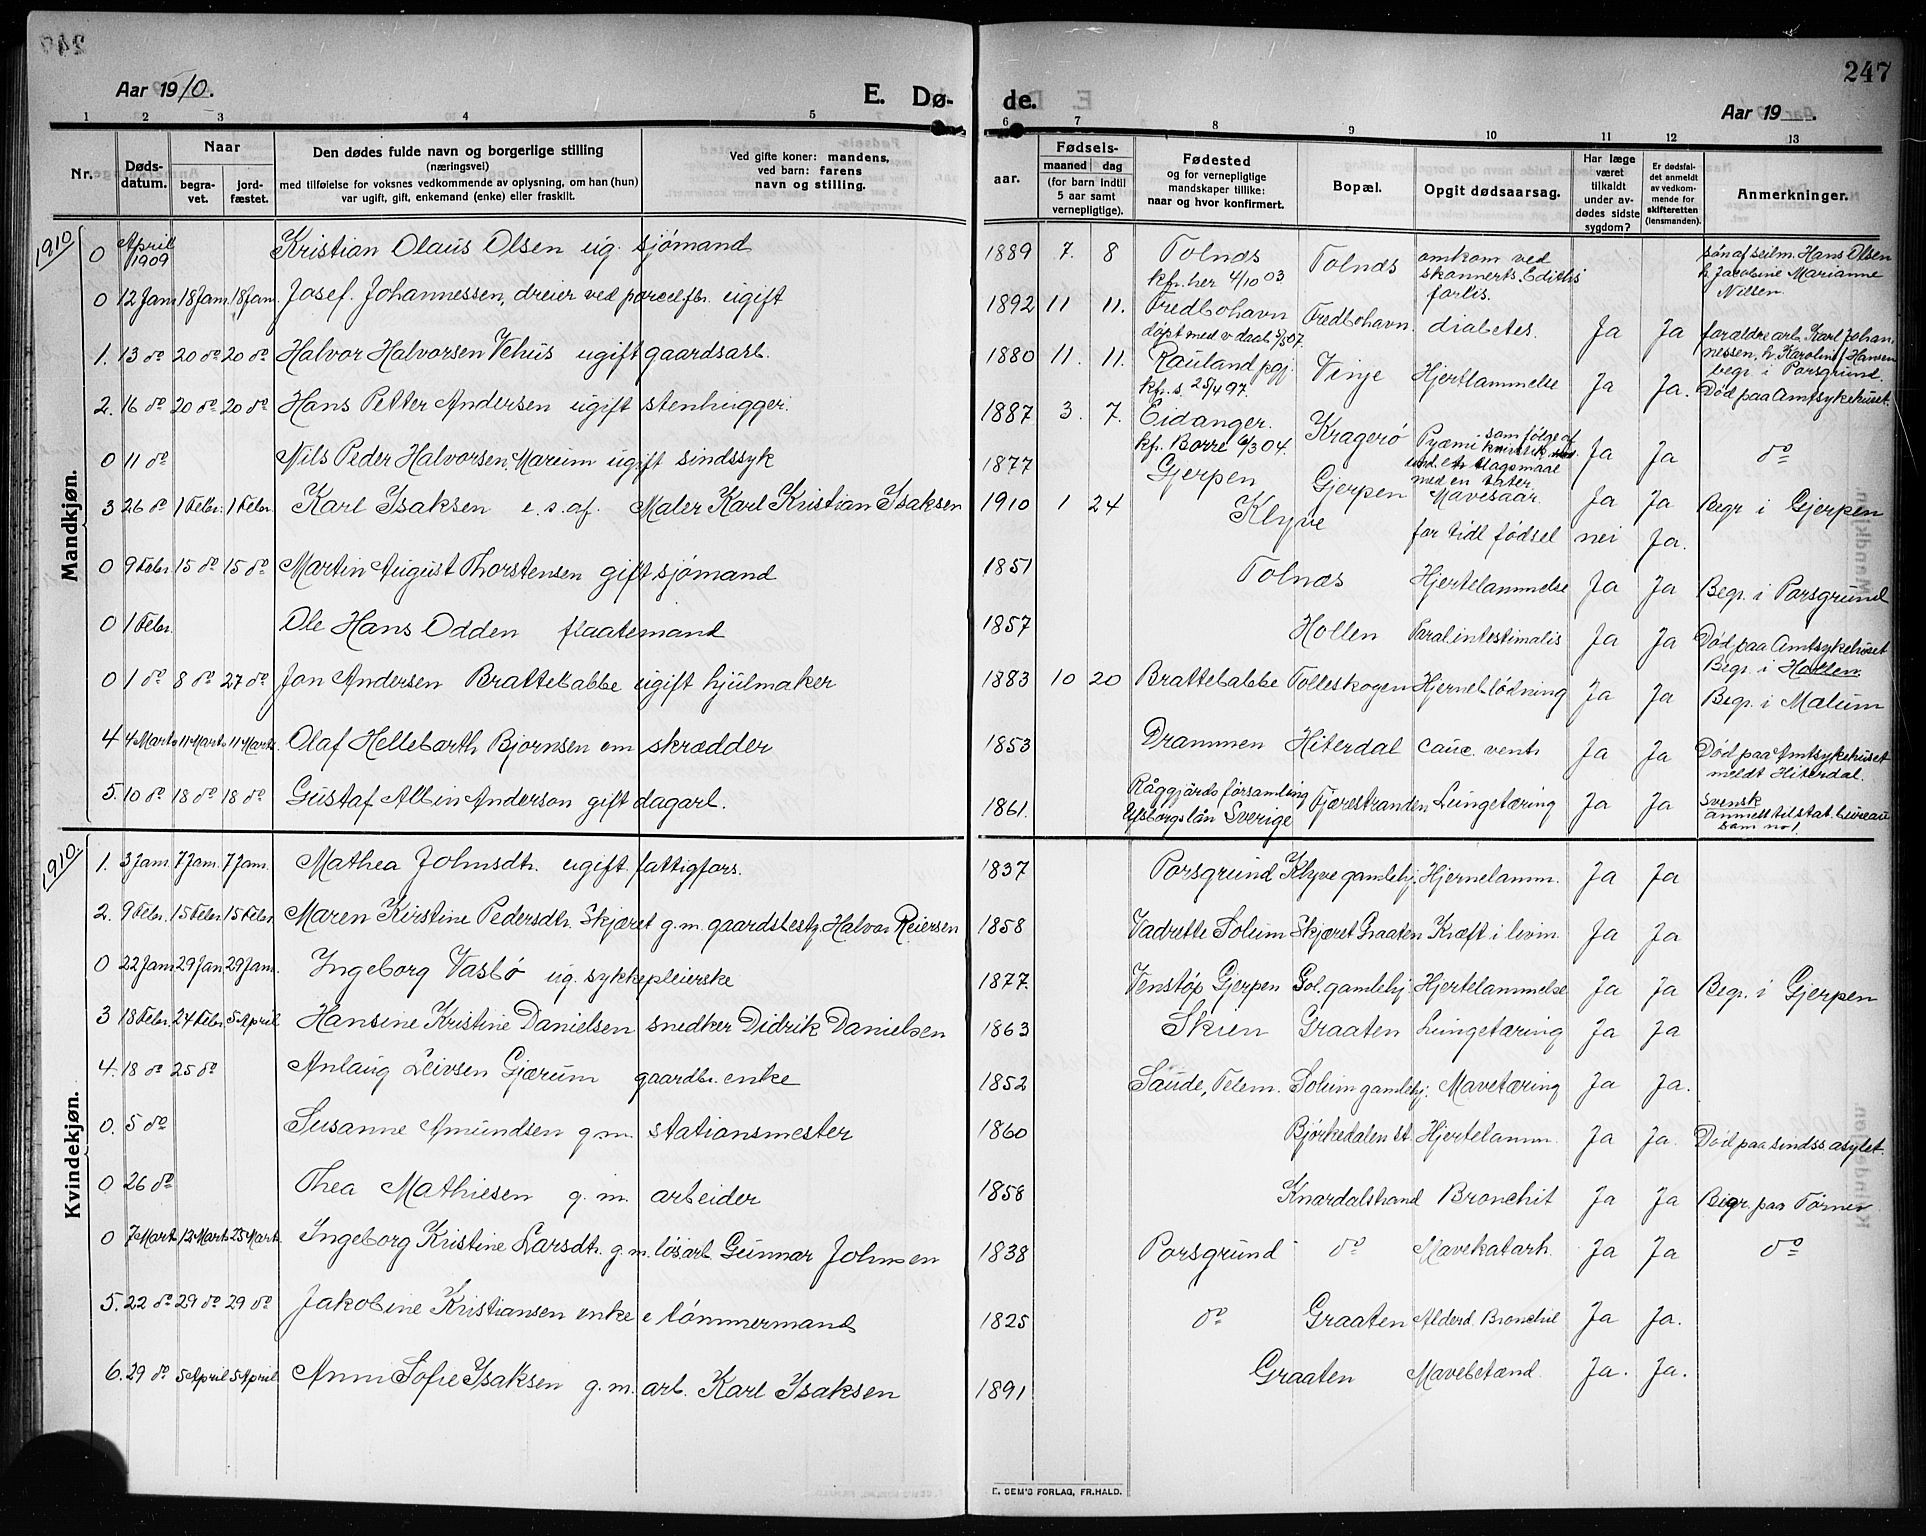 247
Aar 1910. E. Dø- de. Aar 19 .
1 2 3 4 5 6 7 8 9 10 11 12 13
Nr. Dødsdatum. Naar begravet. jordfæstet. Den dødes fulde navn og borgerlige stilling (næringsvei) med tilføielse for voksnes vedkommende av oplysning, om han (hun) var ugift, gift, enkemand (enke) eller fraskilt. Ved gifte koner: mandens, ved barn: farens navn og stilling. Fødsels- aar. maaned dag (for barn indtil 5 aar samt vernepligtige). Fødested og for vernepligtige mandskaper tillike: naar og hvor konfirmert. Bopæl. Opgit dødsaarsag. Har læge været tilkaldt under avdødes sidste sygdom? Er dødsfaldet anmeldt av vedkommende for skifteretten (lensmanden). Anmerkninger.
1910
Mandkjøn.
0 April 1909 Kristian Olaus Olsen ug. sjømand 1889 7. 8 Tolnæs kfr. her 4/10 03 Tolnæs omkom ved skonnerts. Ediths forlis. søn af seilm. Hans Olsen h. Jacobine Marianne Nilsen.
0 12 Jan. 18 Jan. 18 Jan. Josef. Johannessen, dreier ved porcelfbr. ugift 1892 11 11. Fredbohavn døpt med v. daab 5/5 07 Fredbohavn. diabetes. Ja Ja forældre arb. Karl Johannessen, h. Karoline f. Hansen begr. i Porsgrund.
1. 13 do 20 do 20 do Halvor Halvorsen Vehus ugift gaardsarb. 1880 11. 11. Rauland pgj. kfr. s. 25/4 97. Vinje Hjertlammelse Ja Ja. Død paa Amtsykehuset.
2. 16 do 20 do 20 do Hans Petter Andersen ugift stenhugger. 1887 3. 7. Eidanger. kfr. Borre 6/3 04. Kragerø Pyæmi som følge af knivstik und. et slagsmaal med en tater. Ja Ja do
0 11 do Nils Peder Halvorsen, Mærum ugift sindssyk 1877 Gjerpen Gjerpen Mavesaar. Ja Ja Begr. i Gjerpen
3 26 do 1 Febr. 1 Febr. Karl Isaksen e. s. af. Maler Karl Kristian Isaksen 1910 1 24 Klyve for tidl fødsel nei Ja.
0 9 Febr. 15 do 15 do Martin August Thorstensen gift sjømand 1851 Tolnæs Hjertelammelse Ja Ja Begr. i Porsgrund
0 1 Febr. Ole Hans Odden flaatemand 1857 Hollen Paral. intestinalis Ja Ja Død paa Amtsykehuset Begr. i Hollen.
0 1 do 8 do 27 do Jon Andersen Brattebabbe ugift hjulmaker 1883 10 20 Brattebabbe Tolleskogen Hjerneblødning Ja Ja Begr. i Melum
4 4 Marts 11 Marts 11 Marts Olaf Hellebarth Bjørnsen em skrædder 1853 Drammen Hiterdal canc. vent. Ja Ja Død paa Amtsykehuset meldt Hiterdal.
5. 10 do 18 do 18 do Gustaf Albin Anderson gift dagarb. 1861. Råggjärds församling Elfsborgs län Sverige Fjærestranden Lungetæring Ja Ja svensk anmeldt til stat. bureau som no 1.
1910.
Kvindekjøn.
1. 3 Jan. 7 Jan. 7 Jan. Mathea Johnsdtr. ugift fattigfors. 1837 Porsgrund Klyve gamlehj. Hjernelamm. Ja Ja
2. 9 Febr. 15 Febr. 15 Febr. Maren Kirstine Pedersdtr. Skjæret g. m. gaardsbesty. Halvor Reiersen 1858 Vadrette Solum Skjæret Graaten Kræft i livm. Ja Ja
0 22 Jan 29 Jan 29 Jan. Ingeborg Vasbø ug. sykkepleierske 1877. Venstøp Gjerpen Sol. gamlehj. Hjertelammelse Ja Ja Begr. i Gjerpen
3 18 Febr. 24 Febr. 5 April Hansine Kristine Danielsen snedker Didrik Danielsen 1863 Skien Graaten Lungetæring Ja Ja
4. 18 do 25 do Anlaug Leivsen Gjærum gaardbr. enke 1852 Saude, Telem. Solum gamlehj. Mavetæring Ja Ja.
0. 5 do Susanne Amundsen g. m. stationsmester 1860 Bjørkedalen st. Hjertelamm. Ja Ja. Død paa sindss. asylet.
0 26 do Thea Mathiesen g. m. arbeider 1858 Knardalstrand Bronchit Ja Ja Begr. paa Tørnes
0 7 Marts 12 Marts 23 Marts Ingeborg Kristine Larsdtr. g. m. løsarb. Gunnar Johnsen 1838 Porsgrund do Mavekatarh. Ja Ja do
5. 22 do 29 do 29 do Jakobine Kristiansen enke e tømmermand 1825 do Graaten Alderd. Bronchit Ja Ja.
6. 29 do 5 April 5 April Anne Sofie Isaksen g. m. arb. Karl Isaksen 1891 Graaten Mavebetænd. Ja. Ja.
E. SEM'S FORLAG, FR.HALD.